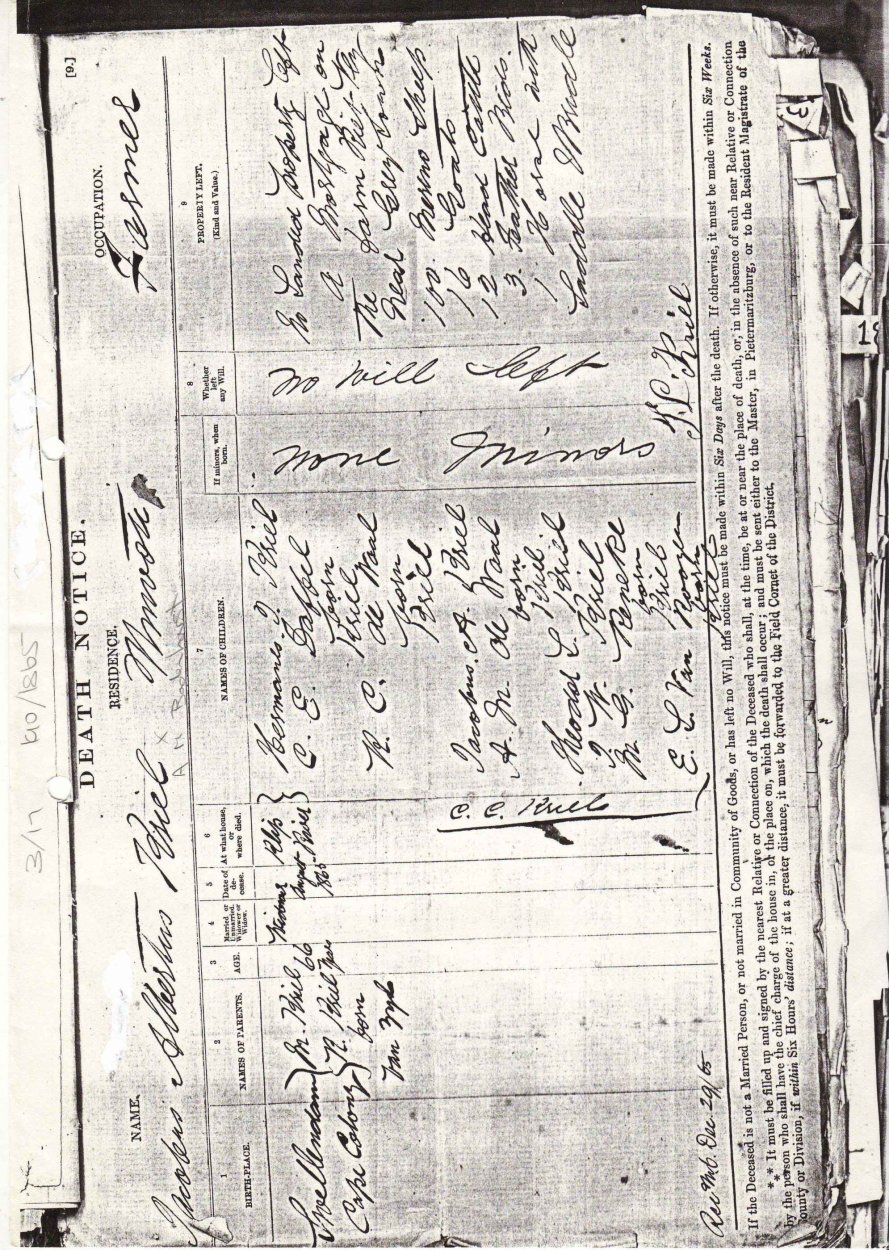 3/17 40/1865
[9.]
DEATH NOTICE.
NAME. RESIDENCE. OCCUPATION.
Jacobus Albertus Kriel Umvoti Farmer
1 2 3 4 5 6 7 8 9
BIRTH-PLACE. NAMES OF PARENTS. AGE. Married or Unmarried. Widower or Widow. Date of decease. At what house, or where died. NAMES OF CHILDREN. If minors, when born. Whether left any Will. PROPERTY LEFT. (Kind and Value.)
Swellendam
Cape Colony
M. Kriel
R. Kriel
born
Van Wyk
66
Years
Widower
August
1865
Klip
River
Hermanus J. Kriel
C. E. Dafel
born
Kriel
R. C. de Waal
born
Kriel
Jacobus. A. Kriel
A. M. de Waal
born
Kriel
Theodor L. Kriel
J. W. Kriel
M. G. Reneke
born
Kriel
E. L. Van Rooyen
born
Kriel
C. C. Kriel
None Minors
No Will left
No Landed Property left
A Mortgage on
The Farm Riet Vly
Near Grey Town
100 Merino Sheep
16 Goats
12 Head Cattle
3. Feather Beds.
1 Horse with
Saddle & Bridle
T. L. Kriel
Rec. Dec. 29/65
If the Deceased is not a Married Person, or not married in Community of Goods, or has left no Will, this notice must be made within Six Days after the death. If otherwise, it must be made within Six Weeks.
*** It must be filled up and signed by the nearest Relative or Connection of the Deceased who shall, at the time, be at or near the place of death, or, in the absence of such near Relative or Connection
by the person who shall have the chief charge of the house in, or the place on, which the death shall occur; and must be sent either to the Master, in Pietermaritzburg, or to the Resident Magistrate of the
ounty or Division, if within Six Hours' distance; if at a greater distance, it must be forwarded to the Field Cornet of the District.